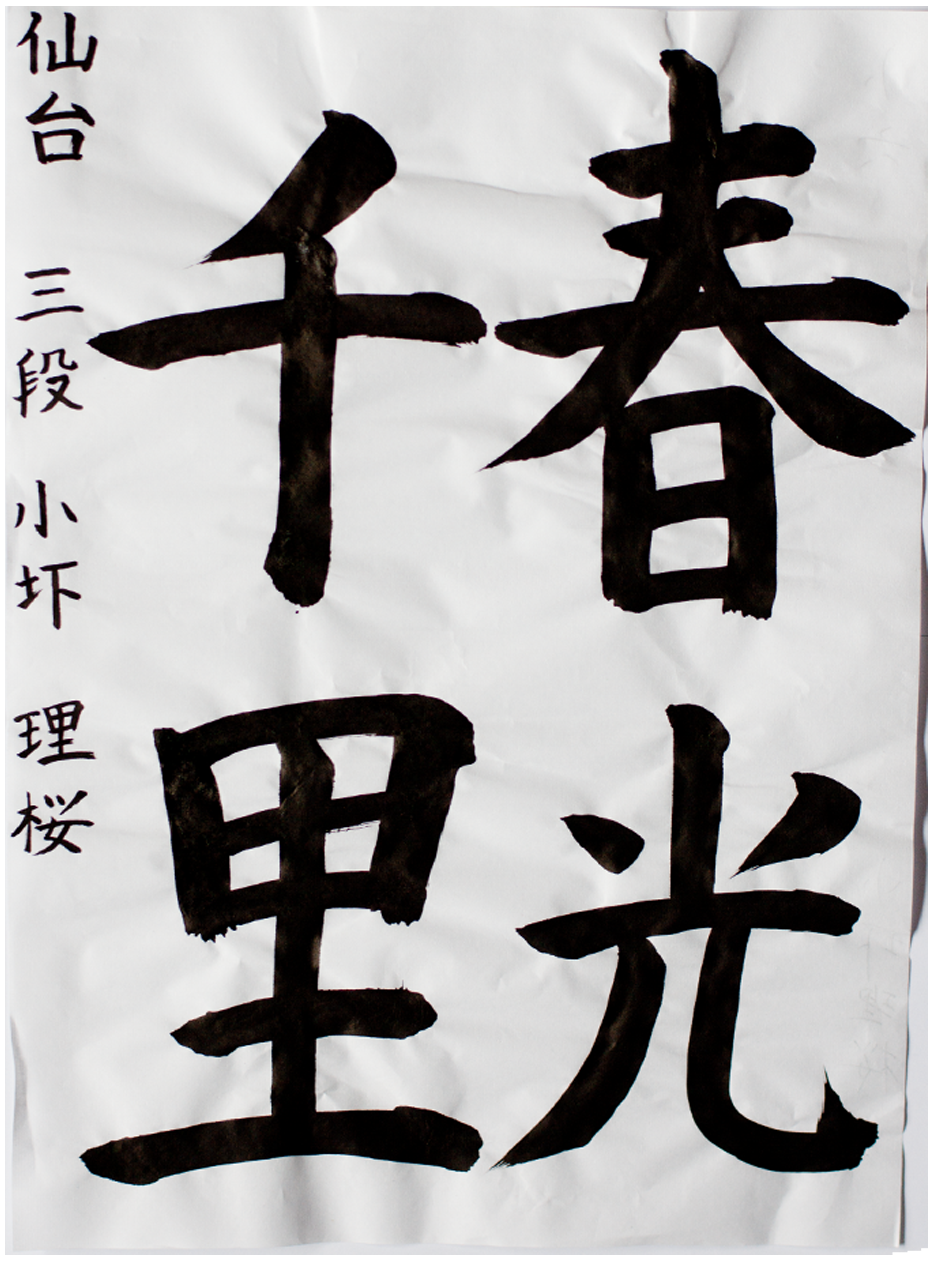 春光
千里
仙台 三段 小圷 理桜